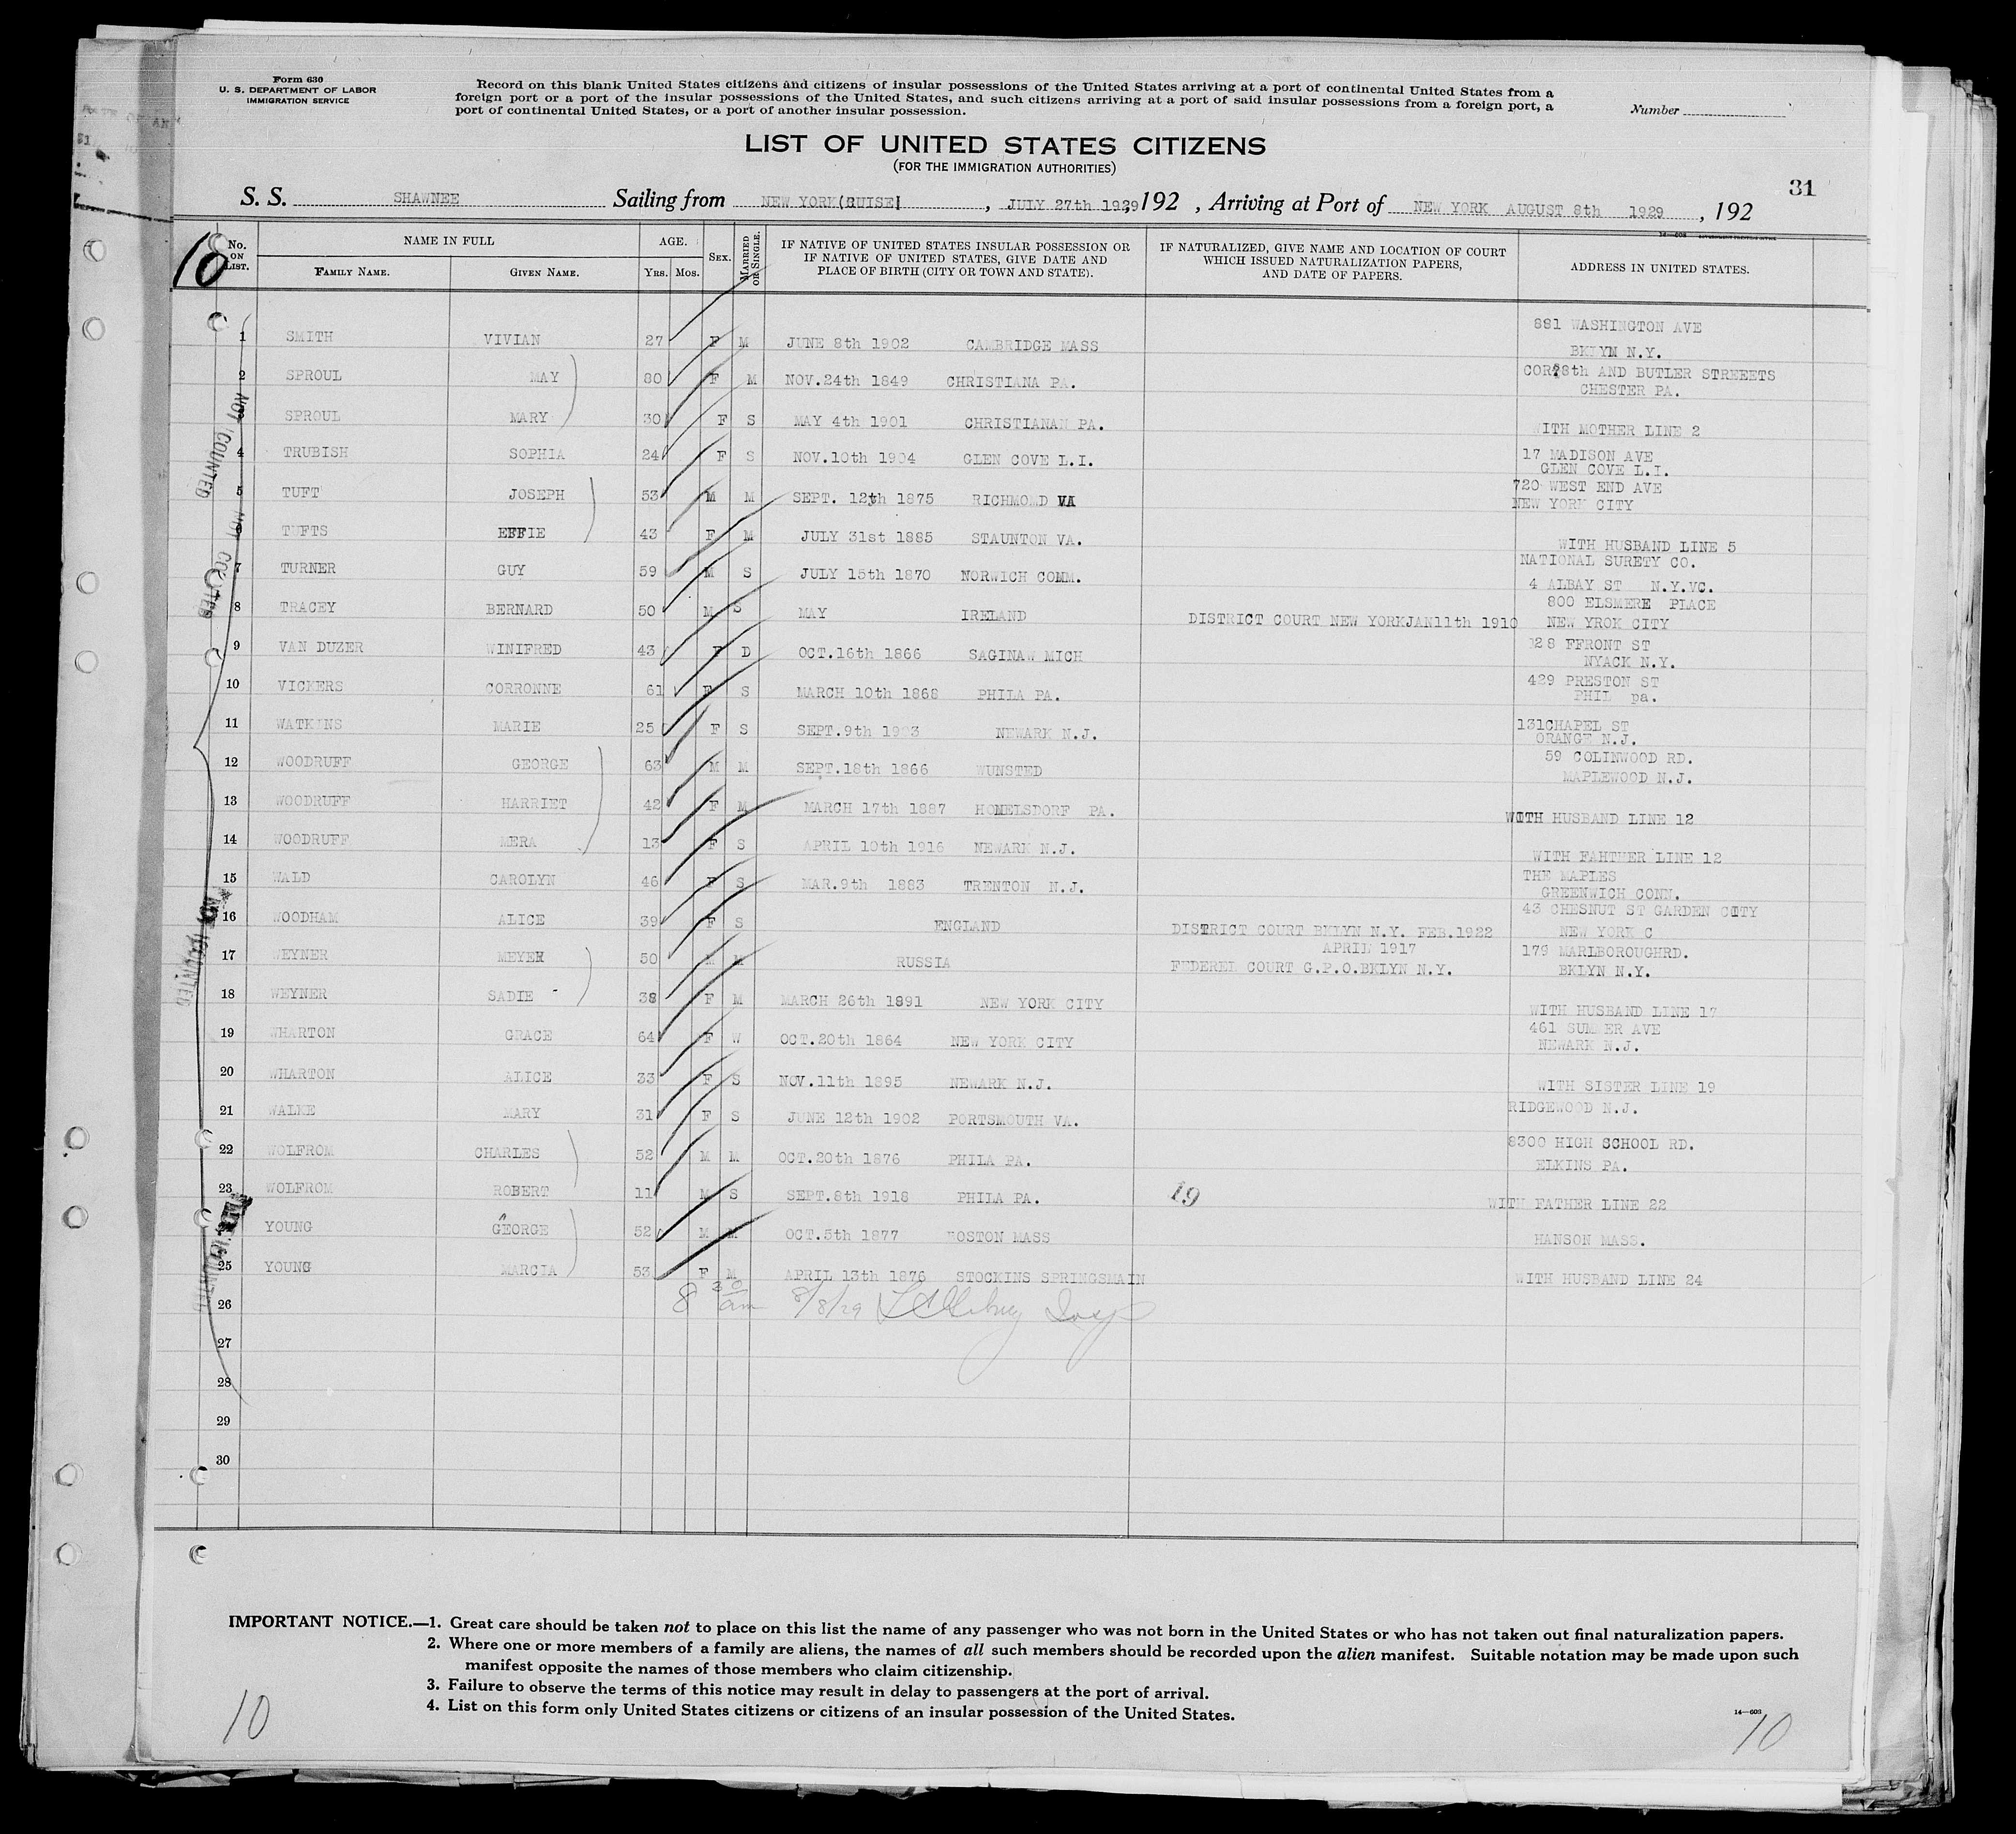 Form 630
U. S. DEPARTMENT OF LABOR
IMMIGRATION SERVICE
Record on this blank United States citizens and citizens of insular possessions of the United States arriving at a port of continental United States from a
foreign port or a port of the insular possessions of the United States, and such citizens arriving at a port of said insular possessions from a foreign port, a
port of continental United States, or a port of another insular possession.
Number
LIST OF UNITED STATES CITIZENS
(FOR THE IMMIGRATION AUTHORITIES)
31
S. S. SHAWNEE Sailing from NEW YORK(RUISE) , JULY 27th 1929, 192 , Arriving at Port of NEW YORK AUGUST 8th 1929 , 192
10
No. ON LIST. NAME IN FULL AGE. SEX. MARRIED OR SINGLE. IF NATIVE OF UNITED STATES INSULAR POSSESSION OR IF NATIVE OF UNITED STATES, GIVE DATE AND PLACE OF BIRTH (CITY OR TOWN AND STATE). IF NATURALIZED, GIVE NAME AND LOCATION OF COURT WHICH ISSUED NATURALIZATION PAPERS, AND DATE OF PAPERS. ADDRESS IN UNITED STATES.
FAMILY NAME. GIVEN NAME. YRS. MOS.
1 SMITH VIVIAN 27 F M JUNE 8th 1902 CAMBRIDGE MASS 881 WASHINGTON AVE
BKLYN N.Y.
2 SPROUL MAY 80 F M NOV.24th 1849 CHRISTIANA PA. COR 8th AND BUTLER STREEETS
CHESTER PA.
SPROUL MARY 30 F S MAY 4th 1901 CHRISTIANAN PA. WITH MOTHER LINE 2
4 TRUBISH SOPHIA 24 F S NOV.10th 1904 GLEN COVE L.I. 17 MADISON AVE
GLEN COVE L.I.
5 TUFT JOSEPH 53 M M SEPT. 12th 1875 RICHMOMD VA 720 WEST END AVE
NEW YORK CITY
6 TUFTS EFFIE 43 F M JULY 31st 1885 STAUNTON VA. WITH HUSBAND LINE 5
7 TURNER GUY 59 M S JULY 15th 1870 NORWICH COMM. NATIONAL SURETY CO.
4 ALBAY ST N.Y.VC.
8 TRACEY BERNARD 50 M S MAY IRELAND DISTRICT COURT NEW YORKJAN11th 1910 800 ELSMERE PLACE
NEW YROK CITY
9 VAN DUZER WINIFRED 43 F D OCT.16th 1866 SAGINAW MICH 128 FFRONT ST
NYACK N.Y.
10 VICKERS CORRONNE 61 F S MARCH 10th 1868 PHILA PA. 429 PRESTON ST
PHIL pa.
11 WATKINS MARIE 25 F S SEPT.9th 1903 NEWARK N.J. 131CHAPEL ST
ORANGE N.J.
12 WOODRUFF GEORGE 63 M M SEPT.18th 1866 WUNSTED 59 COLINWOOD RD.
MAPLEWOOD N.J.
13 WOODRUFF HARRIET 42 F M MARCH 17th 1887 HOMELSDORF PA. WITH HUSBAND LINE 12
14 WOODRUFF MERA 13 F S APRIL 10th 1916 NEWARK N.J. WITH FAHTHER LINE 12
15 WALD CAROLYN 46 F S MAR.9th 1883 TRENTON N.J. THE MAPLES
GREENWICH CONN.
16 WOODHAM ALICE 39 F S ENGLAND DISTRICT COURT BKLYN N.Y. FEB.1922 43 CHESNUT ST GARDEN CITY
NEW YORK C
17 WEYNER MEYER 50 M M RUSSIA APRIL 1917
FEDEREL COURT G.P.O.BKLYN N.Y. 179 MARLBOROUGHRD.
BKLYN N.Y.
18 WEYNER SADIE 38 F M MARCH 26th 1891 NEW YORK CITY WITH HUSBAND LINE 17
19 WHARTON GRACE 64 F W OCT.20th 1864 NEW YORK CITY 461 SUMMER AVE
NEWARK N.J.
20 WHARTON ALICE 33 F S NOV.11th 1895 NEWARK N.J. WITH SISTER LINE 19
21 WALKE MARY 31 F S JUNE 12th 1902 PORTSMOUTH VA. RIDGEWOOD N.J.
22 WOLFROM CHARLES 52 M M OCT.20th 1876 PHILA PA. 8300 HIGH SCHOOL RD.
ELKINS PA.
23 WOLFROM ROBERT 11 M S SEPT.8th 1918 PHILA PA. 19 WITH FATHER LINE 22
YOUNG GEORGE 52 M M OCT.5th 1877 BOSTON MASS HANSON MASS.
25 YOUNG MARCIA 53 F M APRIL 13th 1876 STOCKINS SPRINGSMAIN WITH HUSBAND LINE 24
26 8 30 am 8/8/29 Insp
27
28
29
30
NOT COUNTED
NOT COUNTED
NOT COUNTED
NOT COUNTED
IMPORTANT NOTICE.—1. Great care should be taken not to place on this list the name of any passenger who was not born in the United States or who has not taken out final naturalization papers.
2. Where one or more members of a family are aliens, the names of all such members should be recorded upon the alien manifest. Suitable notation may be made upon such
manifest opposite the names of those members who claim citizenship.
3. Failure to observe the terms of this notice may result in delay to passengers at the port of arrival.
4. List on this form only United States citizens or citizens of an insular possession of the United States.
14—603
10
10